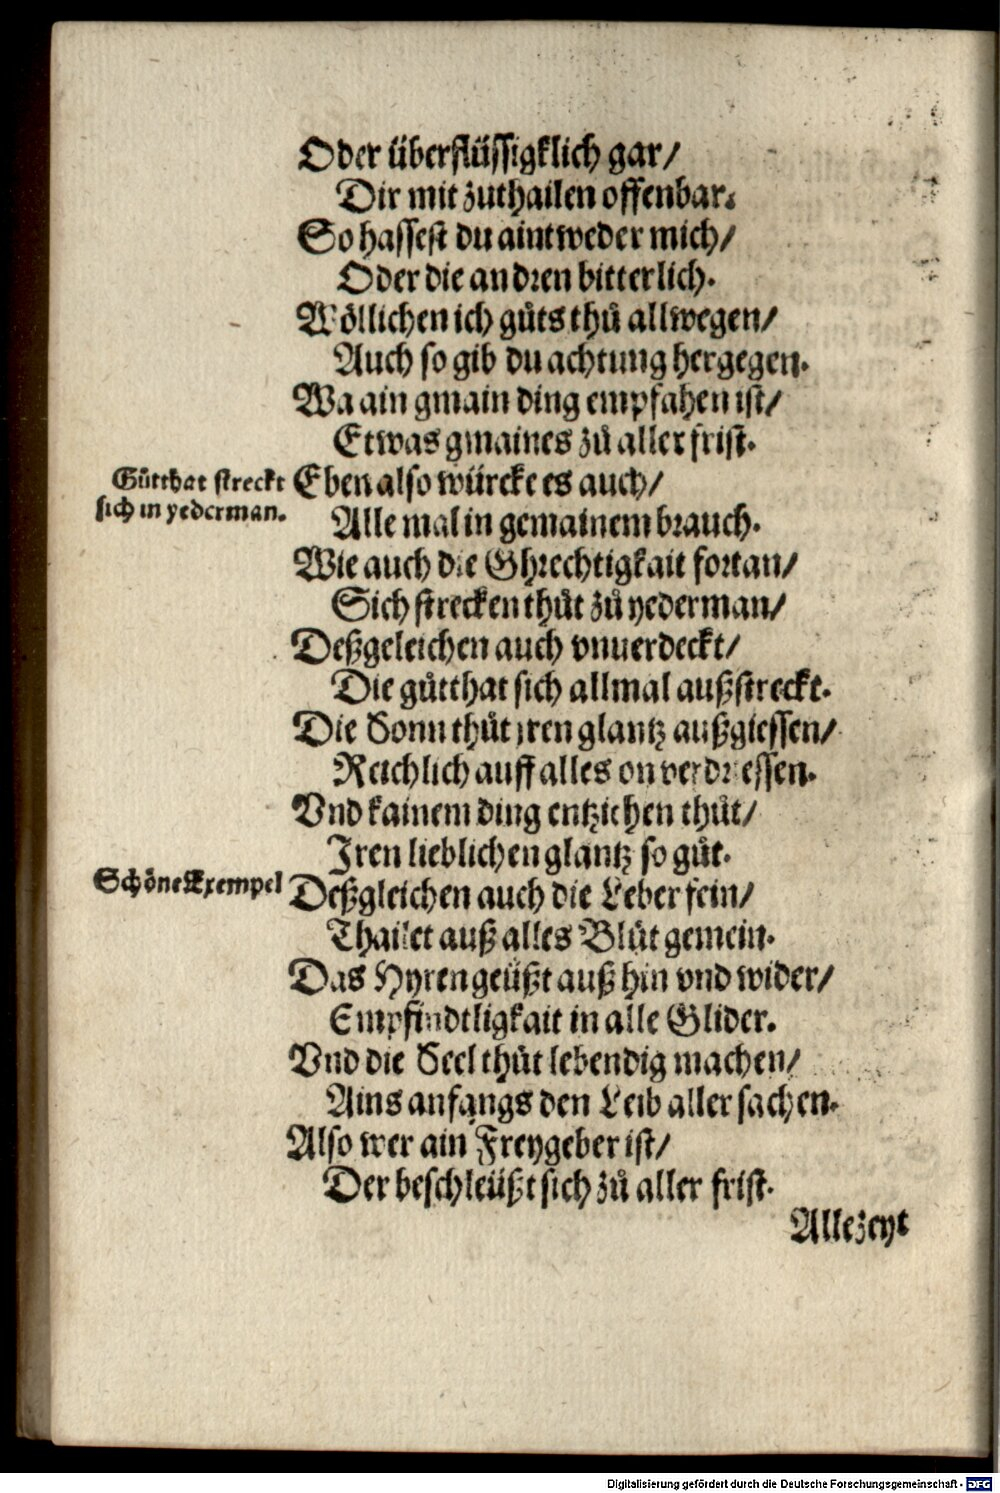 Oder überflüssigklich gar/
Dir mit zuthailen offenbar.
So hassest du aintweder mich/
Oder die andren bitterlich.
Wöllichen ich gůts thů allwegen/
Auch so gib du achtung hergegen.
Wa ain gmain ding empfahen ist/
Etwas gmaines zů aller frist.
Gůtthat streckt
sich in yederman.
Eben also würcke es auch/
Alle mal in gemainem brauch.
Wie auch die Ghrechtigkait fortan/
Sich strecken thůt zů yederman/
Deßgeleichen auch vnuerdeckt/
Die gůtthat sich allmal außstreckt.
Die Sonn thůt jren glantz außgiessen/
Reichlich auff alles on verdriessen.
Vnd kainem ding entziehen thůt/
Jren lieblichen glantz so gůt.
Schönes Exempel
Deßgleichen auch die Leber fein/
Thailet auß alles Blůt gemein.
Das Hyren geüßt auß hin vnd wider/
Empfindtligkait in alle Glider.
Vnd die Seel thůt lebendig machen/
Ains anfangs den Leib aller sachen.
Also wer ain Freygeber ist/
Der beschleüßt sich zů aller frist.
Allezeyt
Digitalisierung gefördert durch die Deutsche Forschungsgemeinschaft - DFG